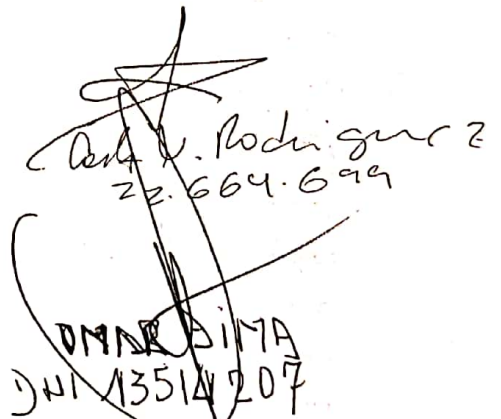 V. Rodriguez
22.664.699
OMAR SIMA
DNI 13514207